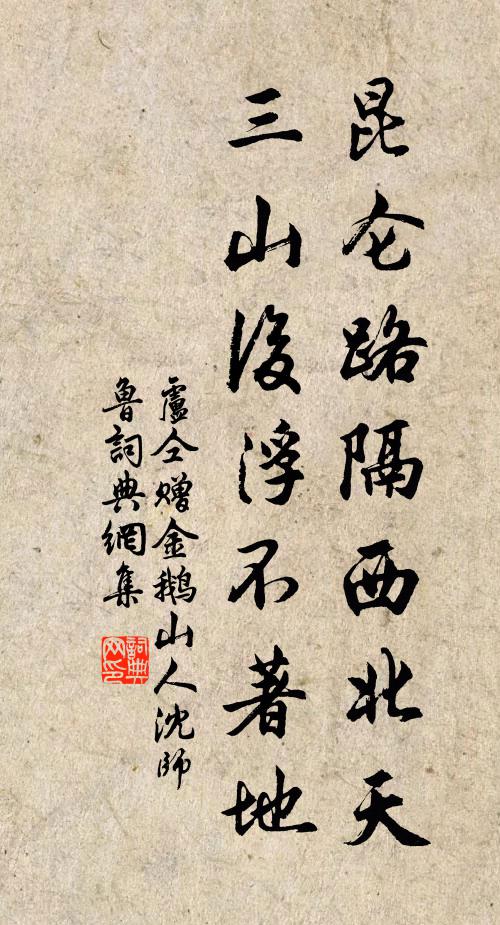 昆仑路隔西北天
三山後浮不著地
盧仝赠金鹅山人沈師
魯詞典網集
詞典网印